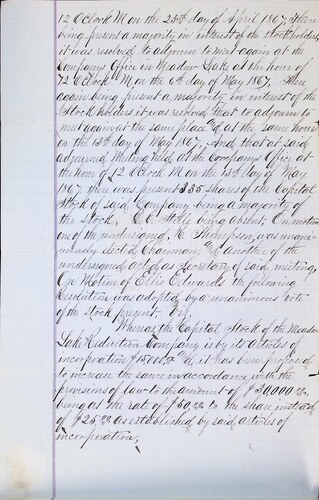 12 O'clock M on the 23d day of April 1867. There
being present a majority in interest of the stockholders
it was resolved to adjourn to meet again at the
Companys Office in Meadow Lake at the hour of
12 O'clock M on the 6th day of May 1867. There
again being present a majority in interest of the
Stock holders it was resolved that to adjourn to
meet again at the same place & at the same hour
on the 13th day of May 1867. And that at said
adjourned Meeting held at the Companys Office at
the hour of 12 O'clock M on the 13th day of May
1867 there was present 335 shares of the Capital
Stock of said Company being a majority of
the Stock. being absent. On motion
one of the undersigned, Thompson, was unani-
mously elected Chairman, & another of the
undersigned as Secretary of said meeting.
On Motion of Ellis Edwards the following
Resolution was adopted by a unanimous vote
of the stock present. Viz:
Whereas the Capital Stock of the Meadow
Lake Reduction Company is by its articles of
incorporation $15000 & it has been proposed
to increase the same in accordance with the
provisions of law to the amount of $30,000
being at the rate of $50 to the share instead
of $25 as established by said articles of
incorporation,